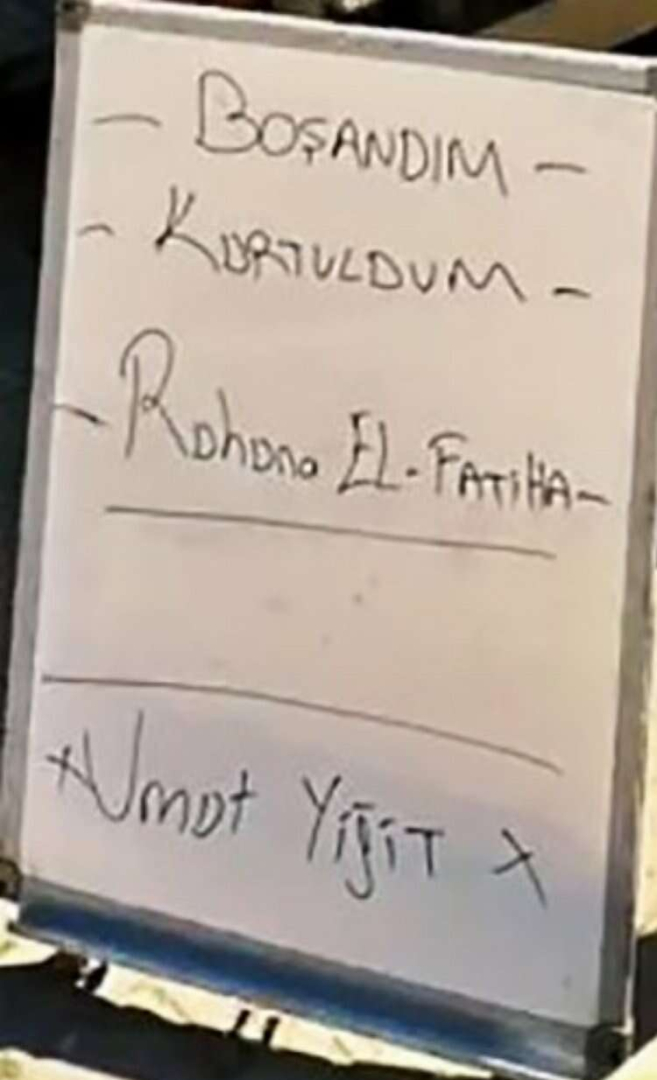 - BOŞANDIM -
- KURTULDUM -
- Ruhuna EL-FATİHA-
x Umut YİĞİT x